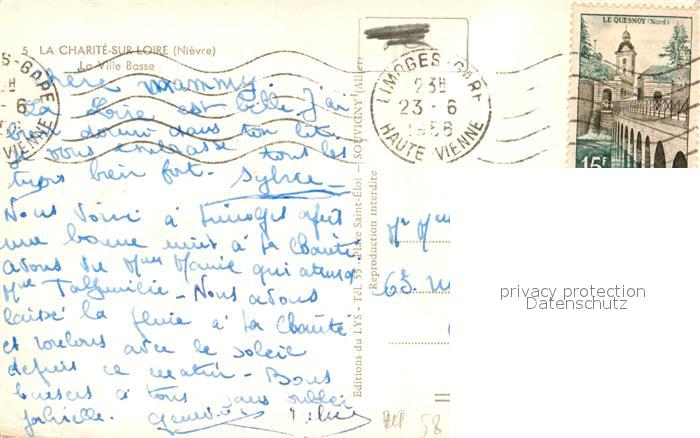 5 LA CHARITÉ-SUR LOIRE (Nièvre)
La Ville Basse
chère mammy
La Loire est belle. J'ai
bien dormi dans ton lit.
Je vous embrasse tous les
trois bien fort. Sylvie
Nous voici à Limoges après
une bonne nuit à la Charité
avons vu Mme Marie qui
Mme
Nous avons
laissé la pluie à La Charité
et roulons avec le soleil
depuis ce matin - Bons
baisers à tous sans oublier
Editions du LYS - Tél. 55 - Place Saint-Éloi - SOUVIGNY (Allier)
Reproduction interdite
LIMOGES-GARE
23H
23-6
1958
HAUTE VIENNE
LE QUESNOY (Nord)
15F
Mr Mme
privacy protection
Datenschutz
58